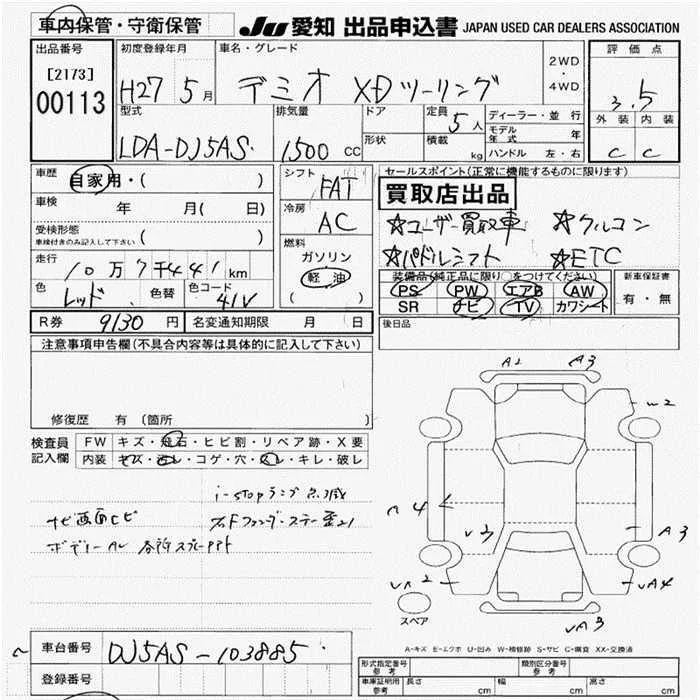 車内保管・守衛保管 JU 愛知 出品申込書 JAPAN USED CAR DEALERS ASSOCIATION
出品番号
[2173]
00113
初度登録年月
H27 5月
車名・グレード
デミオ XDツーリング
2WD
・
4WD
評価点
3.5
外装 内装
C C
型式
LDA-DJ5AS
排気量
1500 CC
ドア
形状
定員
5人
積載
kg
ディーラー・並行
モデル年式 年
ハンドル 左・右
車歴
自家用・( )
車検 年 月( 日)
受検形態
車検付きのみ記入して下さい ( )
走行
10万7千441km
色
レッド
色替
色コード
41V
シフト
FAT
冷房
AC
燃料
ガソリン
(軽油)
セールスポイント(正常に機能するものに限ります)
買取店出品
☆ユーザー買取車 ☆クルコン
☆パドルシフト ☆ETC
装備品(純正品に限り○をつけてください)
PS PW エアB AW
SR ナビ TV カワシート
新車保証書
有・無
R券 9130円 名変通知期限 月 日
後日品
注意事項申告欄(不具合内容等は具体的に記入して下さい)
修復歴 有 (箇所 )
検査員
記入欄
FW キズ・飛石・ヒビ割・リペア跡・X要
内装 キズ・汚レ・コゲ・穴・スレ・キレ・破レ
i-stopランプ点滅
ナビ画面キビ
A2 A3
W2
4
A3
A4
A3
スペア
A-キズ E-エクボ U-凹み W-補修跡 S-サビ C-腐食 XX-交換済
車台番号 DJ5AS-103885
登録番号
形式指定番号
参考
類別区分番号
参考
車庫証明用
参考
長さ cm 幅 cm 高さ cm